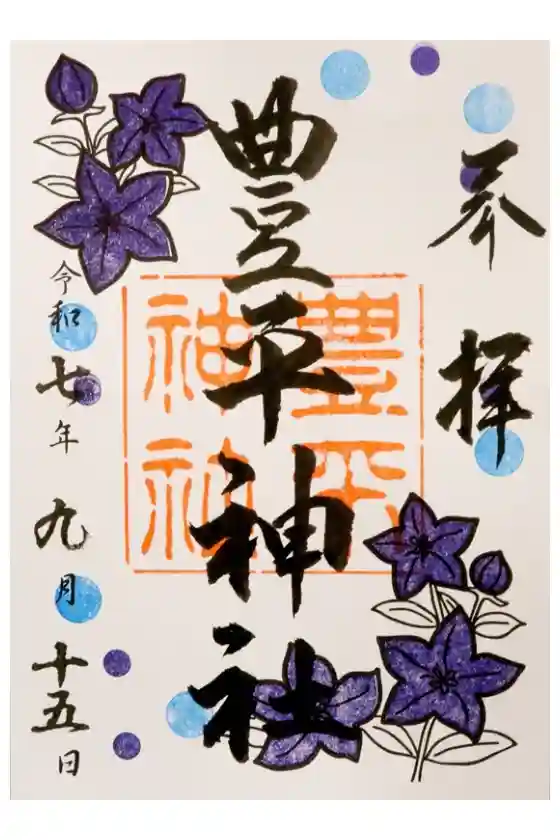 奉拝
豊平神社
豊平
神社
令和七年九月十五日